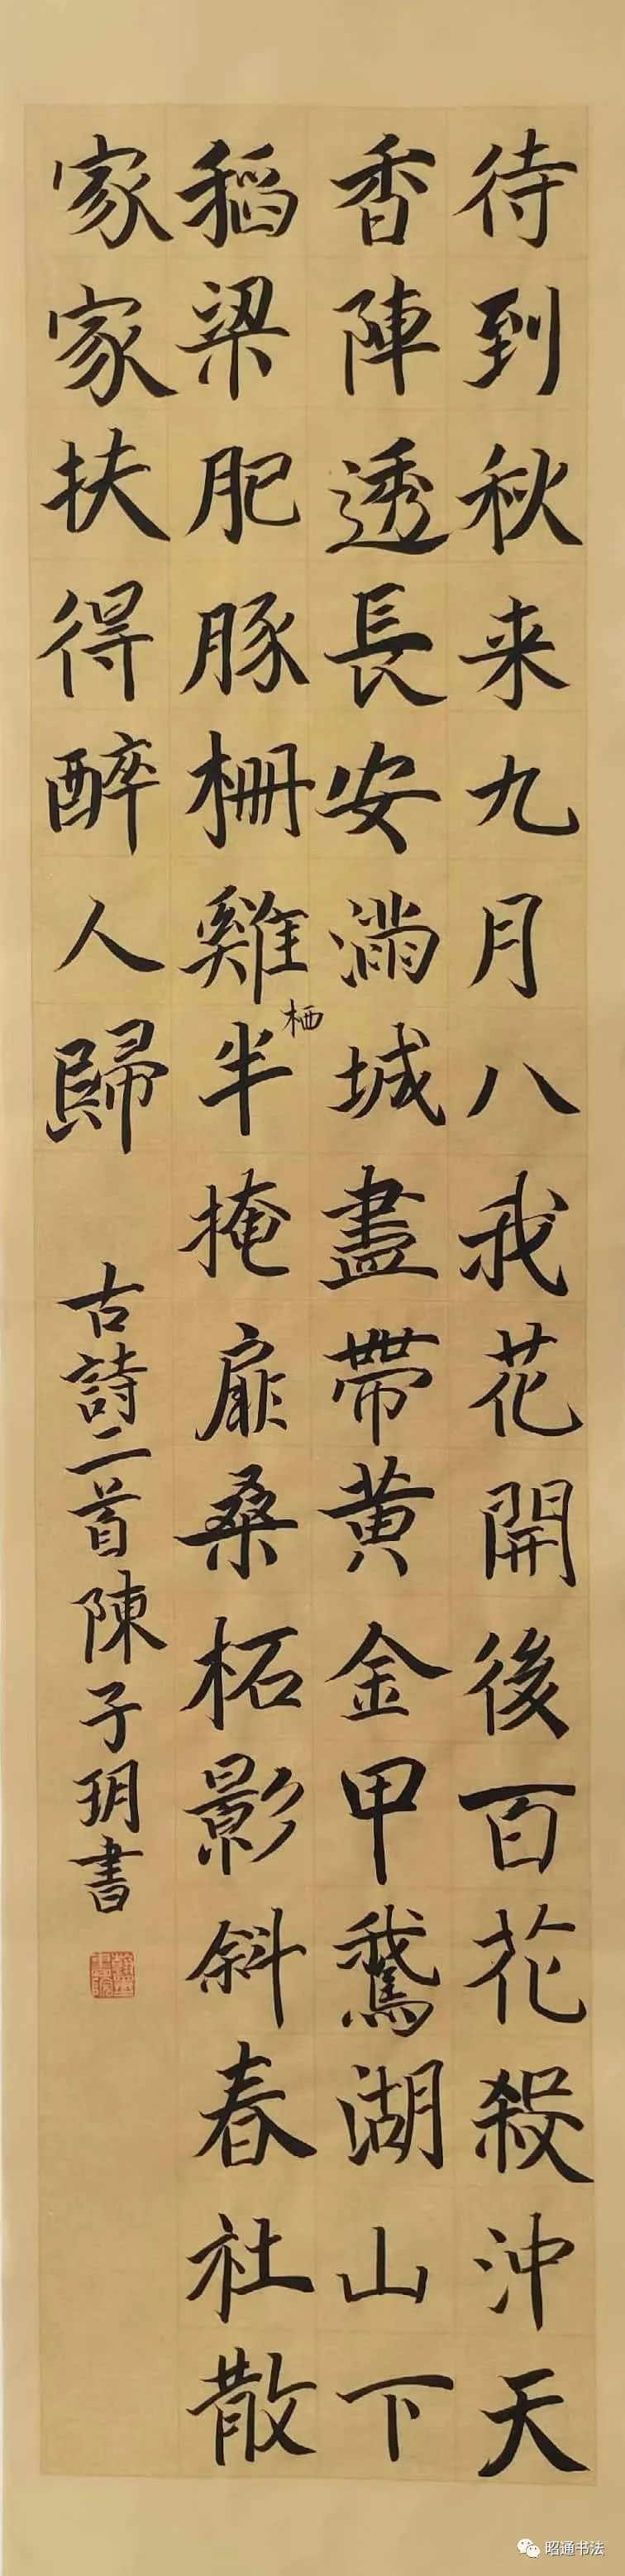 待到秋来九月八我花開後百花殺沖天
香陣透長安滿城盡帶黄金甲鵞湖山下
稻梁肥豚栅雞半掩扉桑柘影斜春社散
栖
家家扶得醉人歸
古詩二首陳子玥書
昭通书法